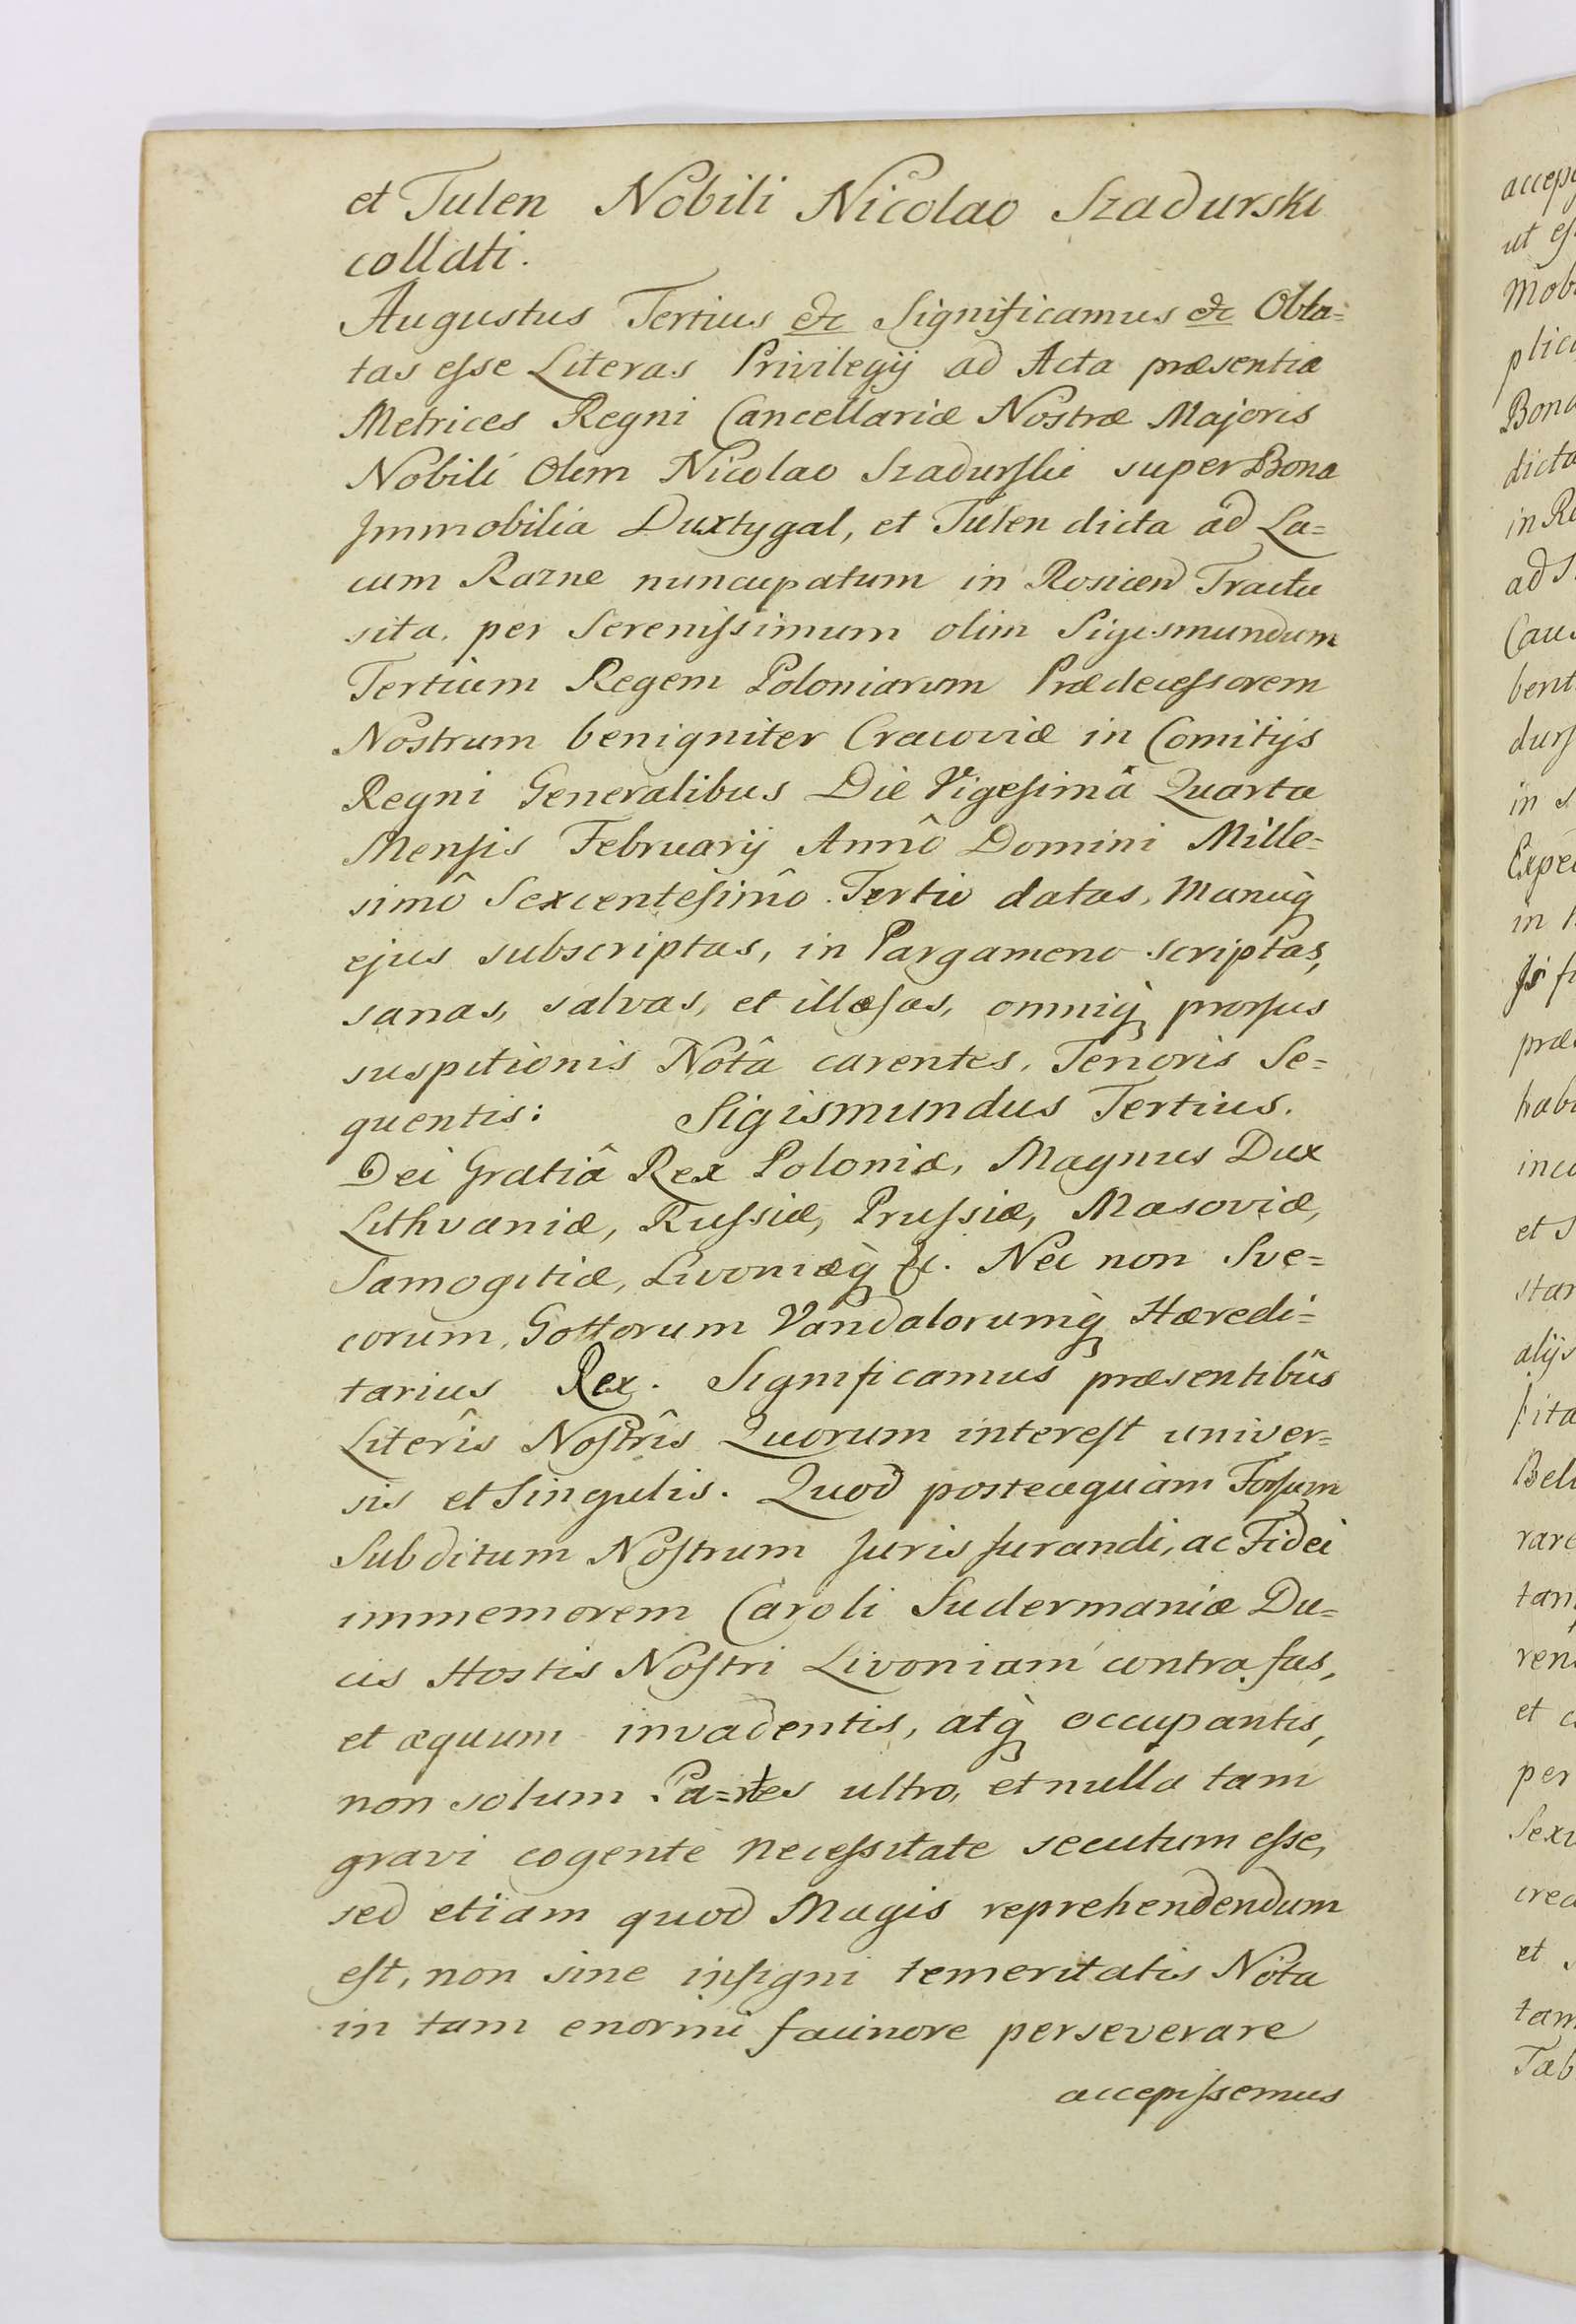 et Tulen Nobili Nicolao Szadurski
collati.
Augustus Tertius etc Significamus etc Obla=
tas esse Literas Privilegij ad Acta præsentia
Metrices Regni Cancellariæ Nostræ Majoris
Nobili Olim Nicolao Szadurski super Bona
Immobilia Duxtygal, et Tulen dicta ad La=
cum Razne nuncupatum in Rosicen Tractu
sita, per Serenissimum olim Sigismundum
Tertium Regem Poloniarum Prædecessorem
Nostrum benigniter Cracoviæ in Comitijs
Regni Generalibus Die Vigesimâ Quarta
Mensis Februarij Annô Domini Mille=
simô Sexcentesimô Tertio datas, Manuq̀
ejus subscriptas, in Pargameno scriptas,
sanas, salvas, et illæsas, omniq̀ prorsus
suspitionis Notâ carentes, Tenoris Se=
quentis: Sigismundus Tertius.
Dei Gratiâ Rex Poloniæ, Magnus Dux
Lithvaniæ, Russiæ, Prussiæ, Masoviæ,
Samogitiæ, Livoniæq̀ &c. Nec non Sve=
corum, Gottorum Vandalorumq̀ Hæredi=
tarius Rex. Significamus præsentibus
Literîs Nostrîs Quorum interest univer=
sis et Singulis. Quod posteaquàm Forsum
Subditum Nostrum Juris Jurandi, ac Fidei
immemorem Caroli Sudermaniæ Du=
cis Hostis Nostri Livoniam contra fas,
et æquum invadentis, atq̀ occupantis,
non solum Pa=rtes ultro, et nulla tam
gravi cogente necessitate secutum esse,
sed etiam quod Magis reprehendendum
est, non sine insigni temeritatis Nota
in tam enormi facinore perseverare
accepissemus
accep
ut es
Mob
plic
Bona
dicta
in R
ad S
Cau
bent
durs
in S
Expe
in
fi
præ
habi
inco
et S
star
alijs
sita
Bel
rare
tam
ren
et c
per
Sex
crea
et
tam
Tab